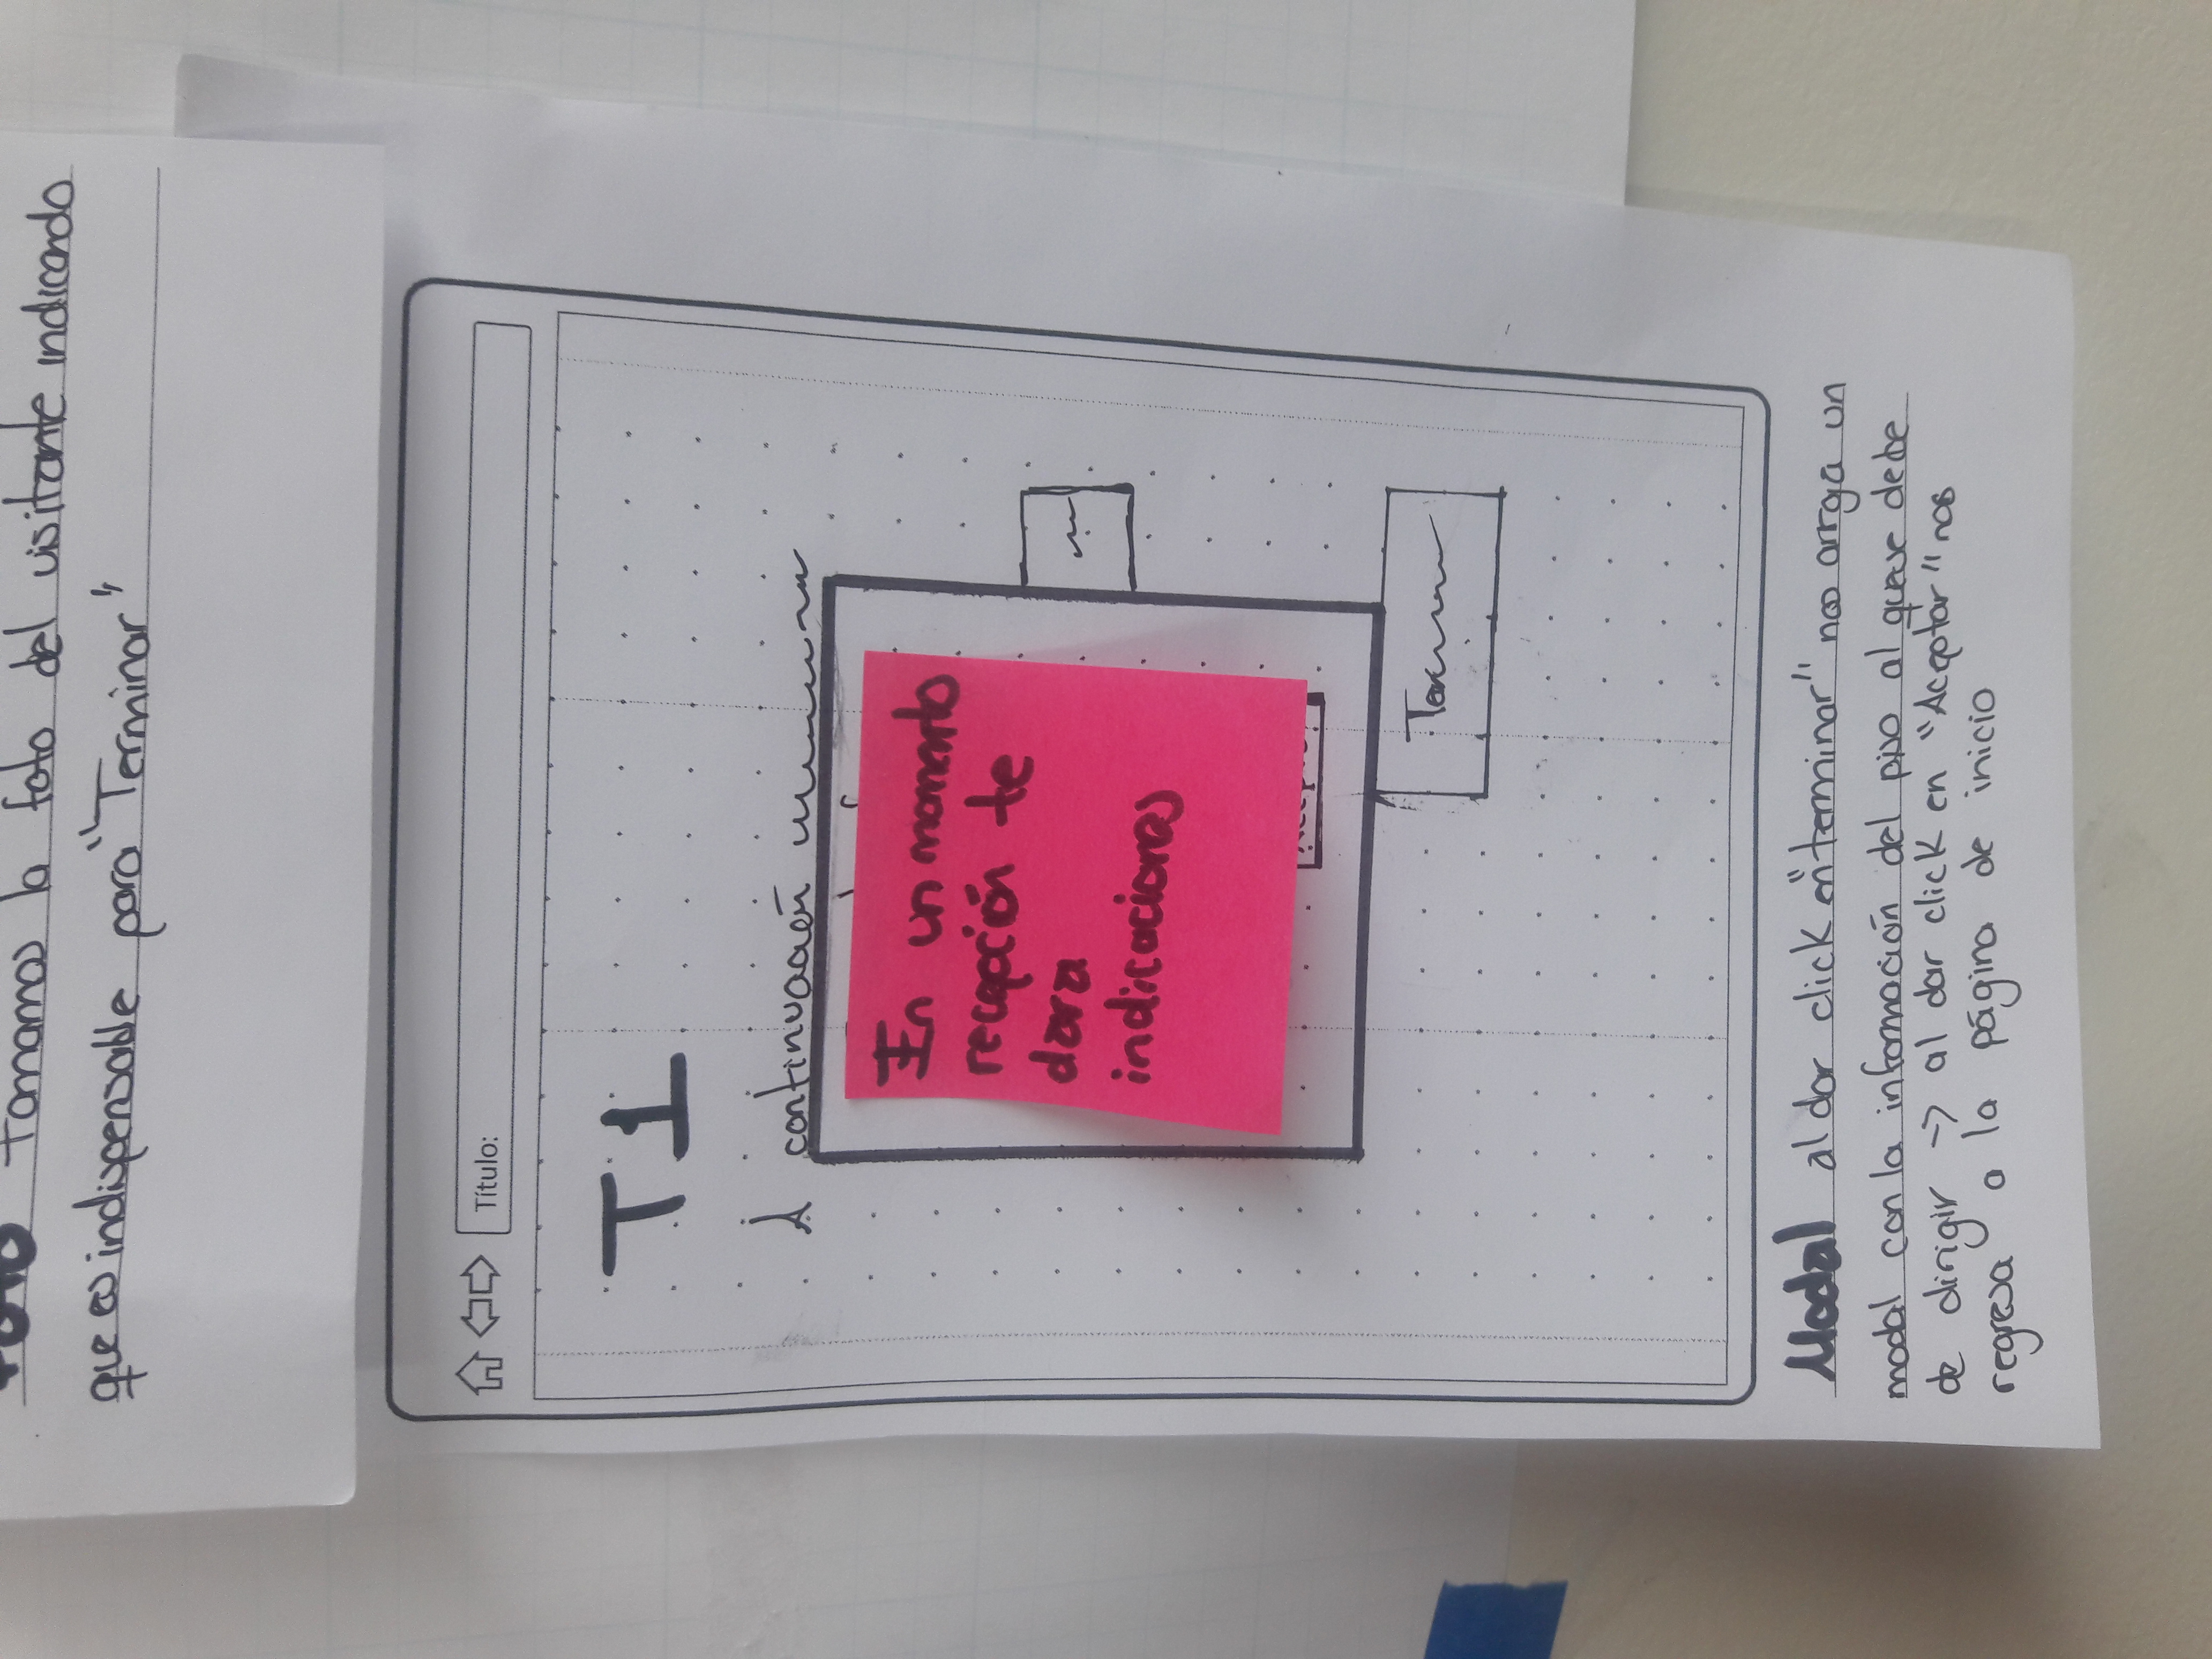 FOTO Tomamos la foto del visitante indicando
que es indispensable para "Terminar"
Título:
T1
A continuación
En un momento
recepción te
dara
indicaciones
Modal al dar click en "terminar" nos arroja un
modal con la información del piso al que se debe
de dirigir -> al dar click en "Aceptar" nos
regresa a la página de inicio